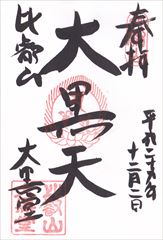 奉拝
平成二十五年
十二月二日
大黒天
比叡山
大黒堂